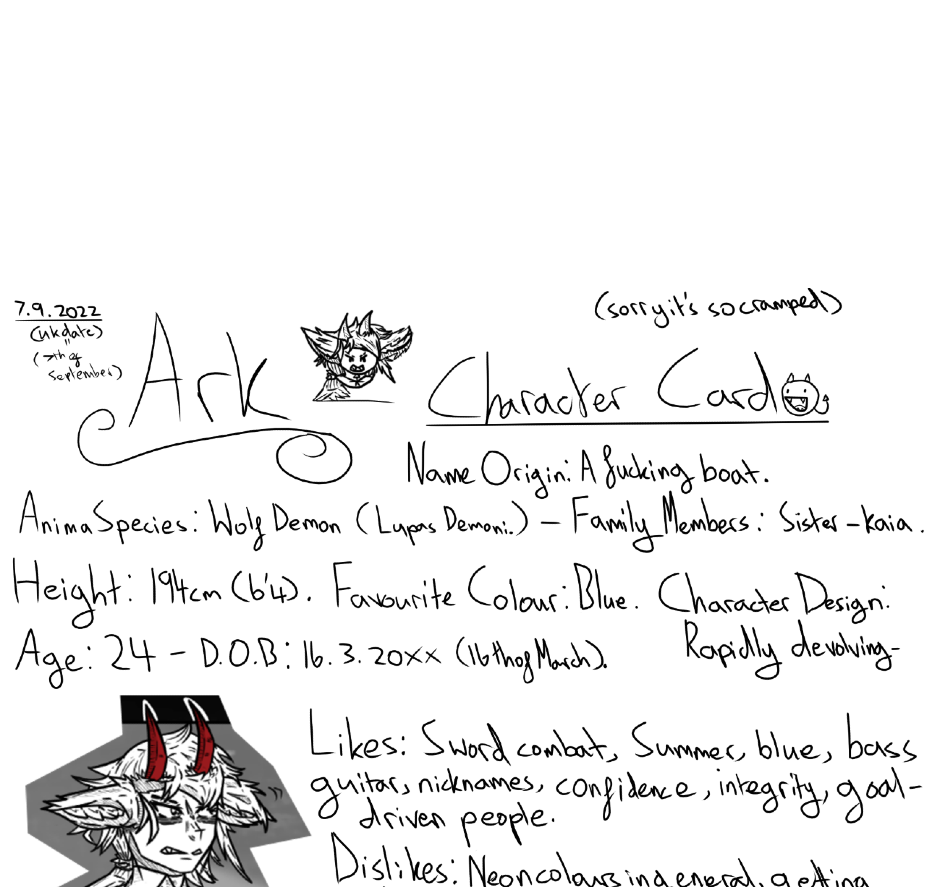 7.9.2022
(sorry it's so cramped)
(uk date)
"
(7th of
September)
Ark
Character Card
Name Origin: A fucking boat.
Anima Species: Wolf Demon (Lupas Demoni.) – Family Members: Sister – Kaia.
Height: 194cm (6'4). Favourite Colour: Blue. Character Design:
Age: 24 – D.O.B: 16.3.20xx (16th of March). Rapidly devolving–
Likes: Sword combat, Summer, blue, bass
guitar, nicknames, confidence, integrity, goal-
driven people.
Dislikes: Neon colours in general, getting